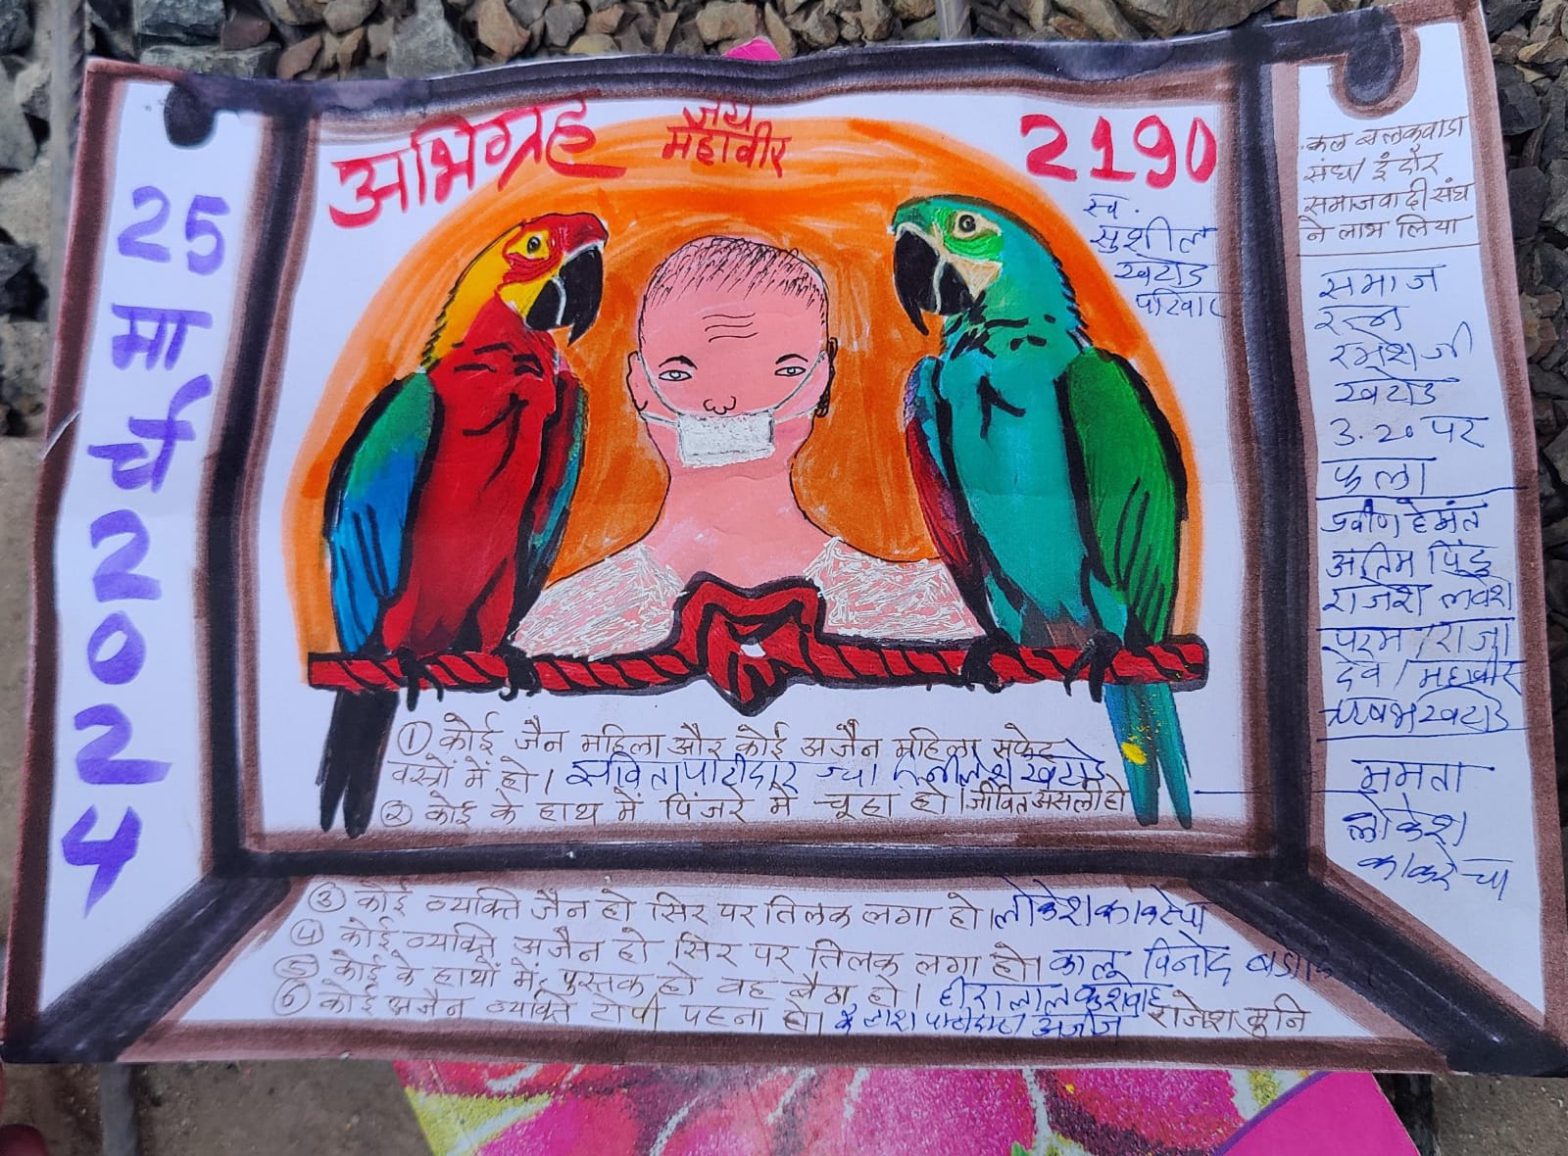 25
मार्च
2024
अभिग्रह
जय
महावीर
2190
स्व.
सुशील
खटोड
परिवार
कल
संघ/ इंदौर
समाजवादी संघ
ने लाभ लिया
समाज
रत्न
रमेश जी
खटोड
3.20 पर
फला
प्रवीण हेमंत
राजेश
ऋषभ खटोड
ममता
लोकेश
काकरेच्या
① कोई जैन महिला और कोई अजैन महिला सफेद
वस्त्रों में हो। सविता पाटीदार
② कोई के हाथ में पिंजरे में चूहा हो। जीवित असली हो
③ कोई व्यक्ति जैन हो सिर पर तिलक लगा हो। लोकेश काकरेच्या
④ कोई व्यक्ति अजैन हो सिर पर तिलक लगा हो। कालू विनोद
⑤ कोई के हाथों में पुस्तक हो वह बैठा हो। हीरालाल कुशवाह
⑥ कोई अजैन व्यक्ति टोपी पहना हो। पाटीदार अजैन राजेश